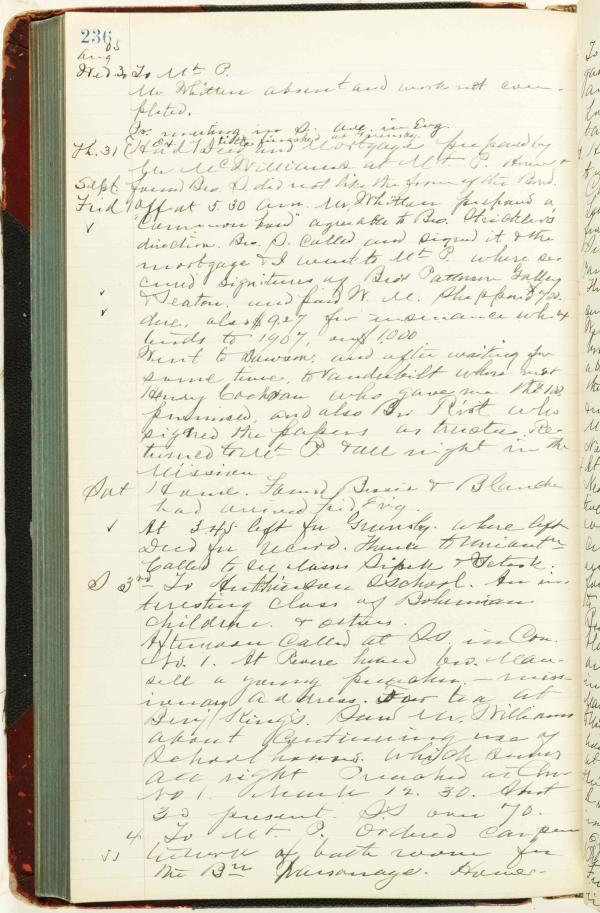 236
Aug 05
Wed. 30 To Mt. P.
Mr Whitten absent and work not com-
pleted.
Pr. meeting in S. Ave. in Evg.
Th. 31 Had Deed and Mortgage prepared by
Mr. McWilliams at Mt. P. Home &
Sept. found Bro. S did not like the form of the Bond.
Frid 1 Off at 5.30 a.m. Mr. Whitten prepared a
"Common bond" agreeable to Bro. Stricklers
direction. Bro. S. called and signed it & the
mortgage & I went to Mt P. where se-
cured signitures of Brot Patterson
& Seaton, and paid W. M. Shepperd 700
due, also $9.27 for insurance wh.
to 1907, on $1000
Went to Dawson, and after waiting for
some time, to Vanderbilt where met
Henry Cochran who gave me the
promised, and also Bro Rist who
signed the papers as trustee. Re-
turned to Mt. P. & all night in the
Mission
Sat Home. Found Bessie & Blanche
had arrived Frid Evg.
At 3.45 left for Greensbg. where left
Deed for record. Thence to
Called to see Misses & :
S 3rd To Hutchinson School. An in-
teresting class of Bohemian
children. & others.
Afternoon called at SS, in Con.
No. 1. At Revere heard bro. Man-
sell a young preacher. – miss-
ionary address. For tea at
Benj King's. Saw Mr. Williams
about continuing use of
School house. which seems
all right Preached in Con
No 1. 12. 30. About
30 present. S.S over 70.
4 To Mt. P. Ordered carpen
work of bath room for
the Bm Parsonage. Home.